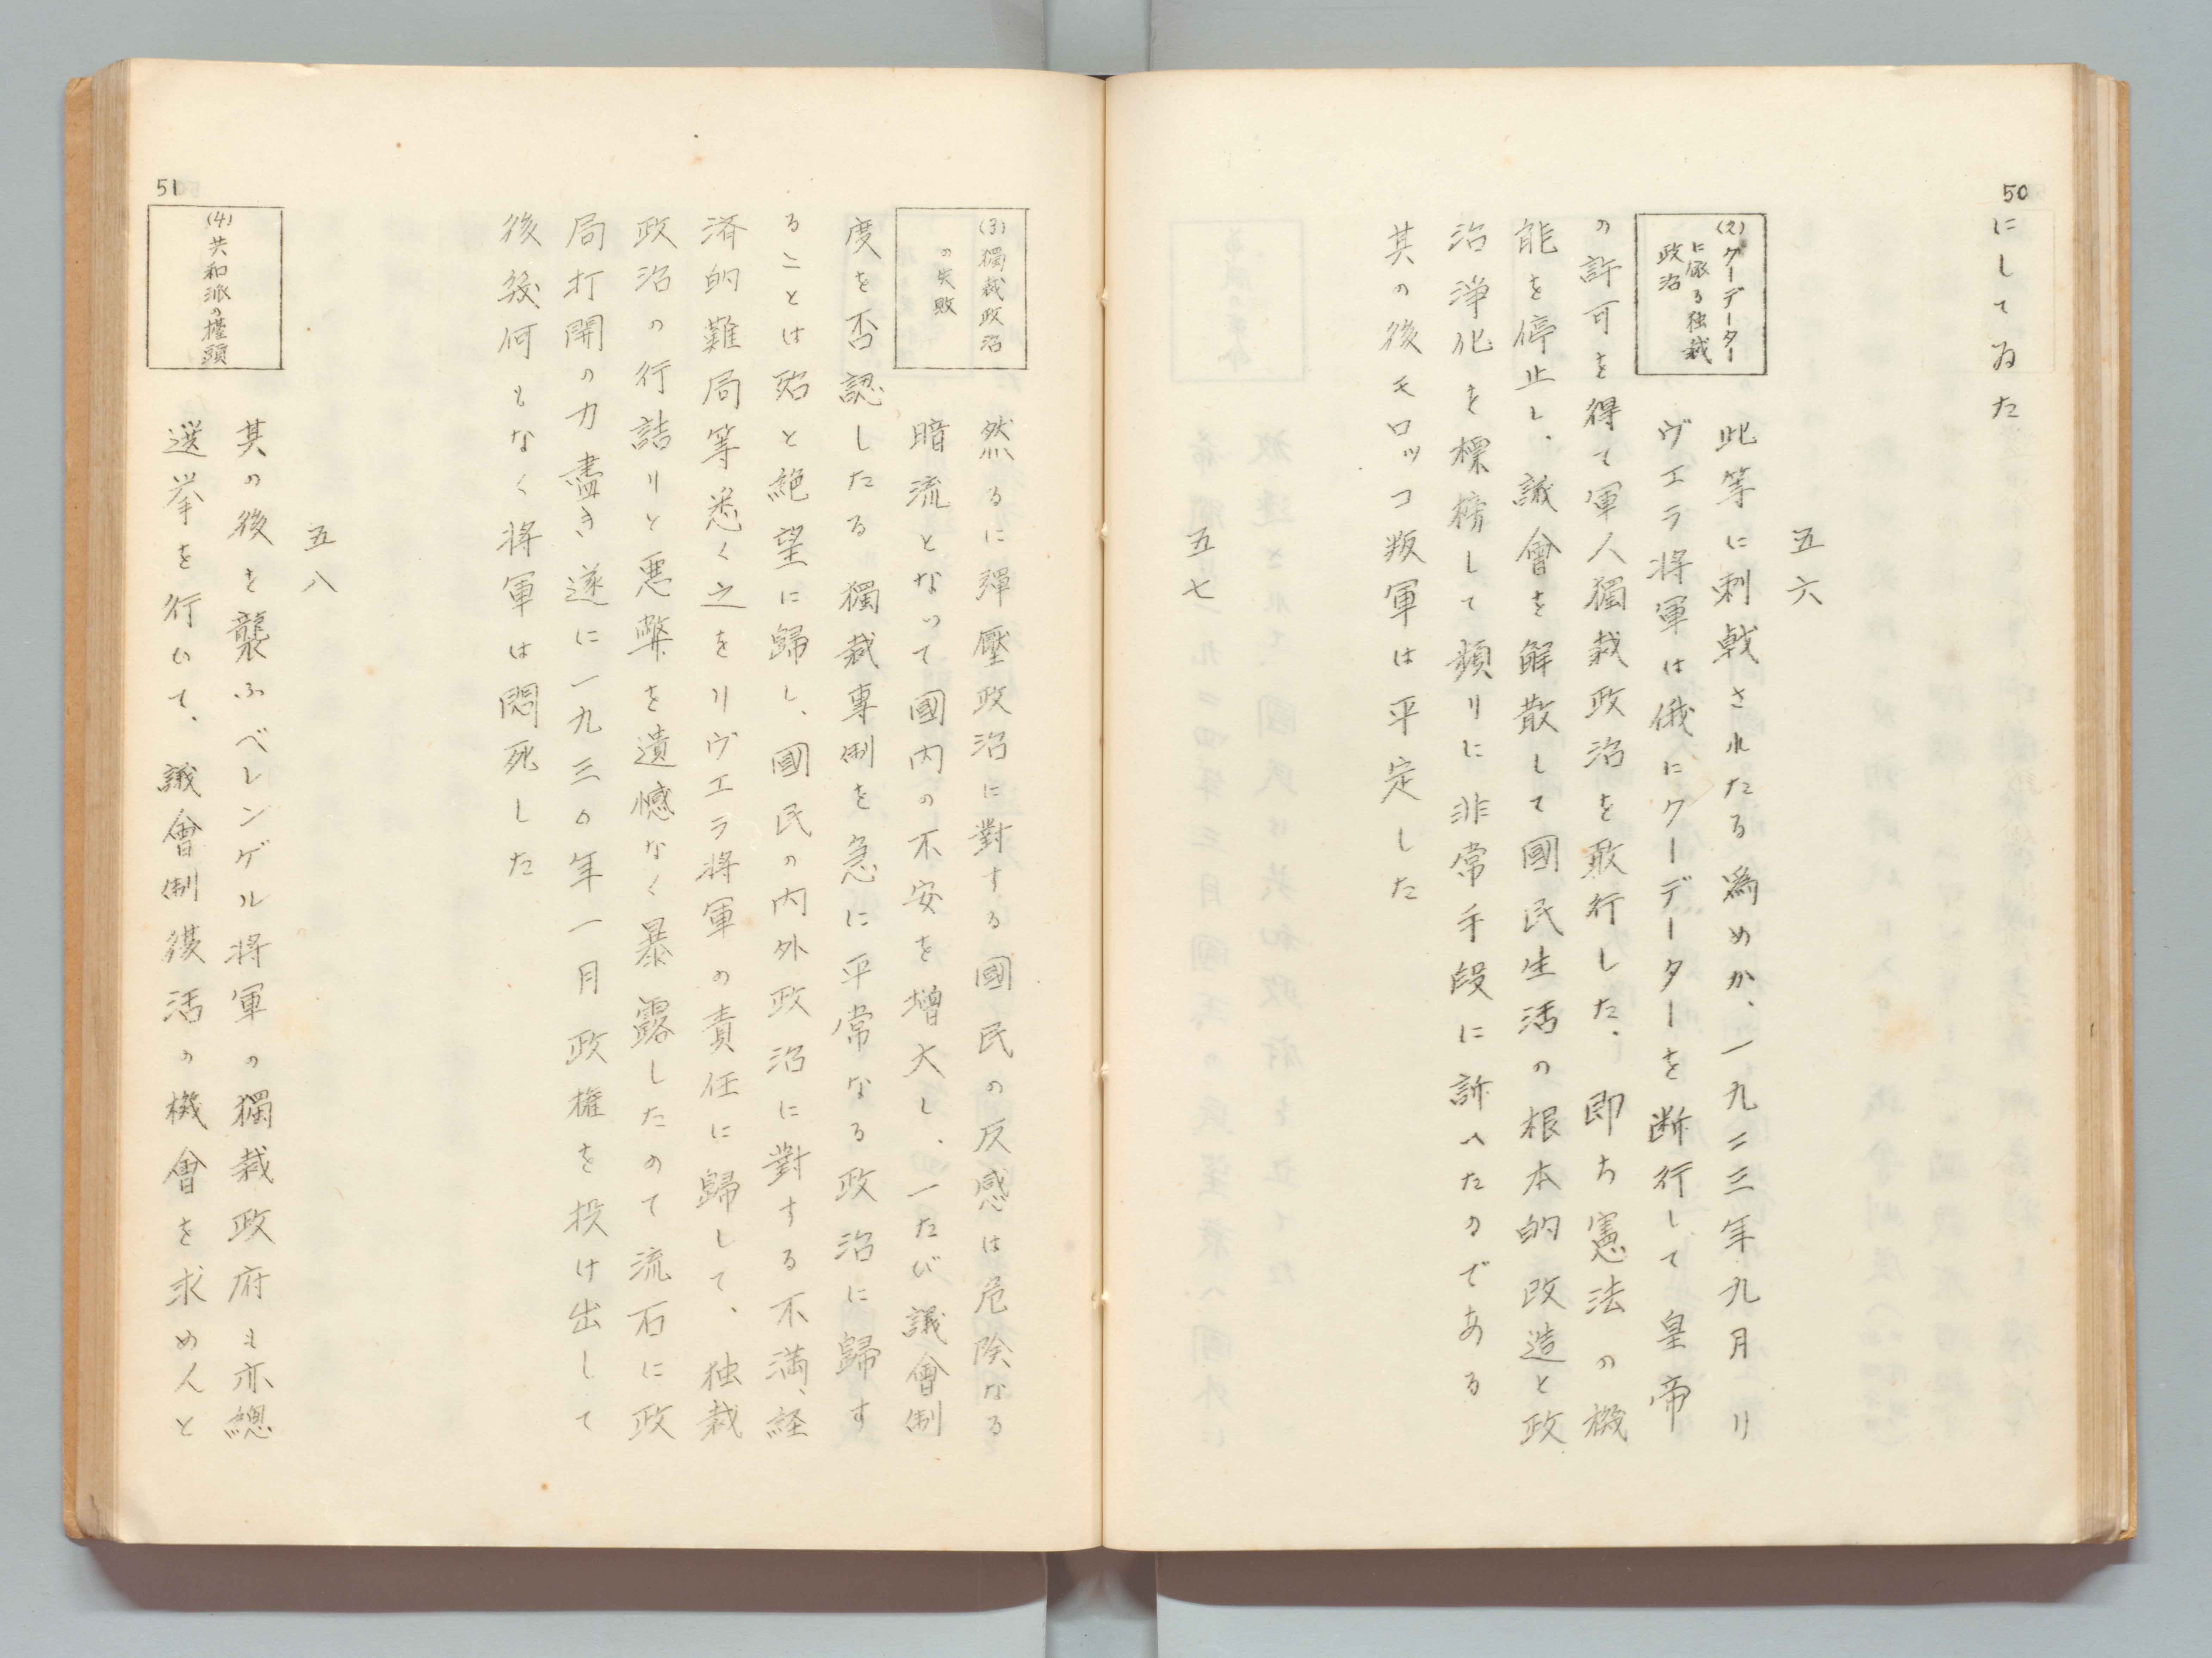 50
にしてゐた
五六
(2)クーデーター
に依る独裁
政治
此等に刺戟されたる為めか、一九二三年九月リ
ヴエラ将軍は俄にクーデーターを断行して皇帝
の許可を得て軍人獨裁政治を敢行した、即ち憲法の機
能を停止し、議會を解散して國民生活の根本的改造と政
治浄化を標榜して頻りに非常手段に訴へたのである
其の後モロッコ叛軍は平定した
五七
(3)獨裁政治
の失敗
然るに彈壓政治に對する國民の反感は危険なる
暗流となって國内の不安を増大し、一たび議會制
度を否認したる獨裁専制を急に平常なる政治に歸す
ることは殆と絶望に歸し、國民の内外政治に對する不満、経
済的難局等悉く之をリヴエラ将軍の責任に歸して、独裁
政治の行詰りと悪弊を遺憾なく暴露したのて流石に政
局打開の力盡き遂に一九三〇年一月政権を投け出して
後幾何もなく将軍は悶死した
五八
51
(4)共和派の擡頭
其の後を襲ふベレンゲル将軍の獨裁政府も亦總
選挙を行いて、議會制復活の機會を求めんと